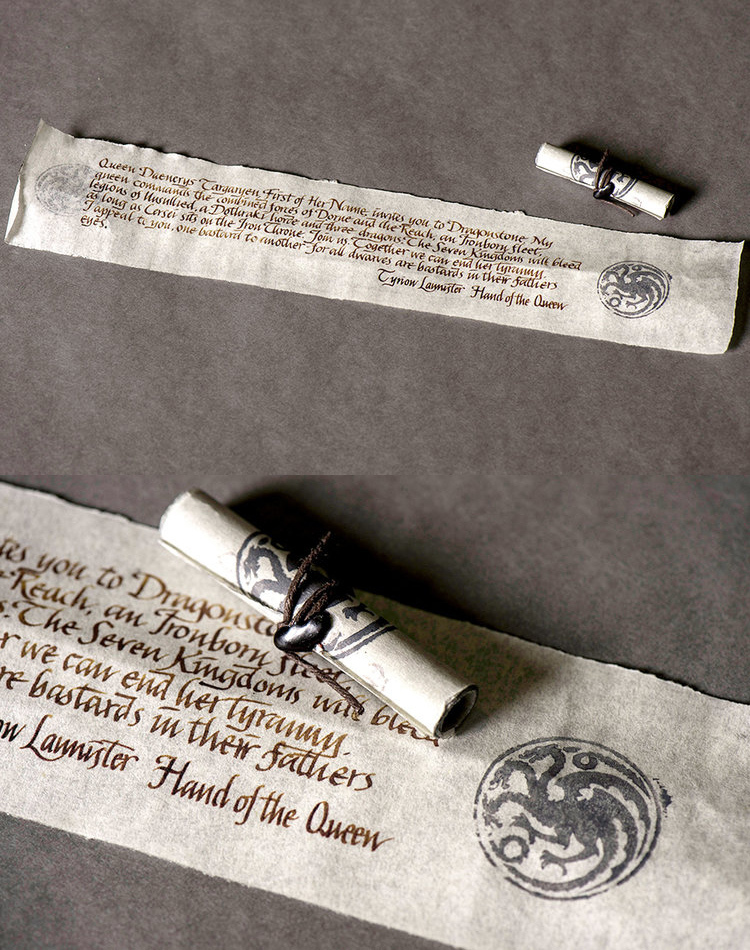 Queen Daenerys Targaryen First of Her Name, invites you to Dragonstone. My
queen commands the combined forces of Dorne and the Reach, an Ironborn fleet,
legions of Unsullied, a Dothraki horde and three dragons. The Seven Kingdoms will bleed
as long as Cersei sits on the Iron Throne. Join us. Together we can end her tyranny.
I appeal to you, one bastard to another for all dwarves are bastards in their fathers
eyes.
Tyrion Lannister Hand of the Queen
ites you to Dragonsto
Reach, an Ironborn fleet
s. The Seven Kingdoms will bleed
r we can end her tyranny.
re bastards in their fathers
ow Lannister Hand of the Queen